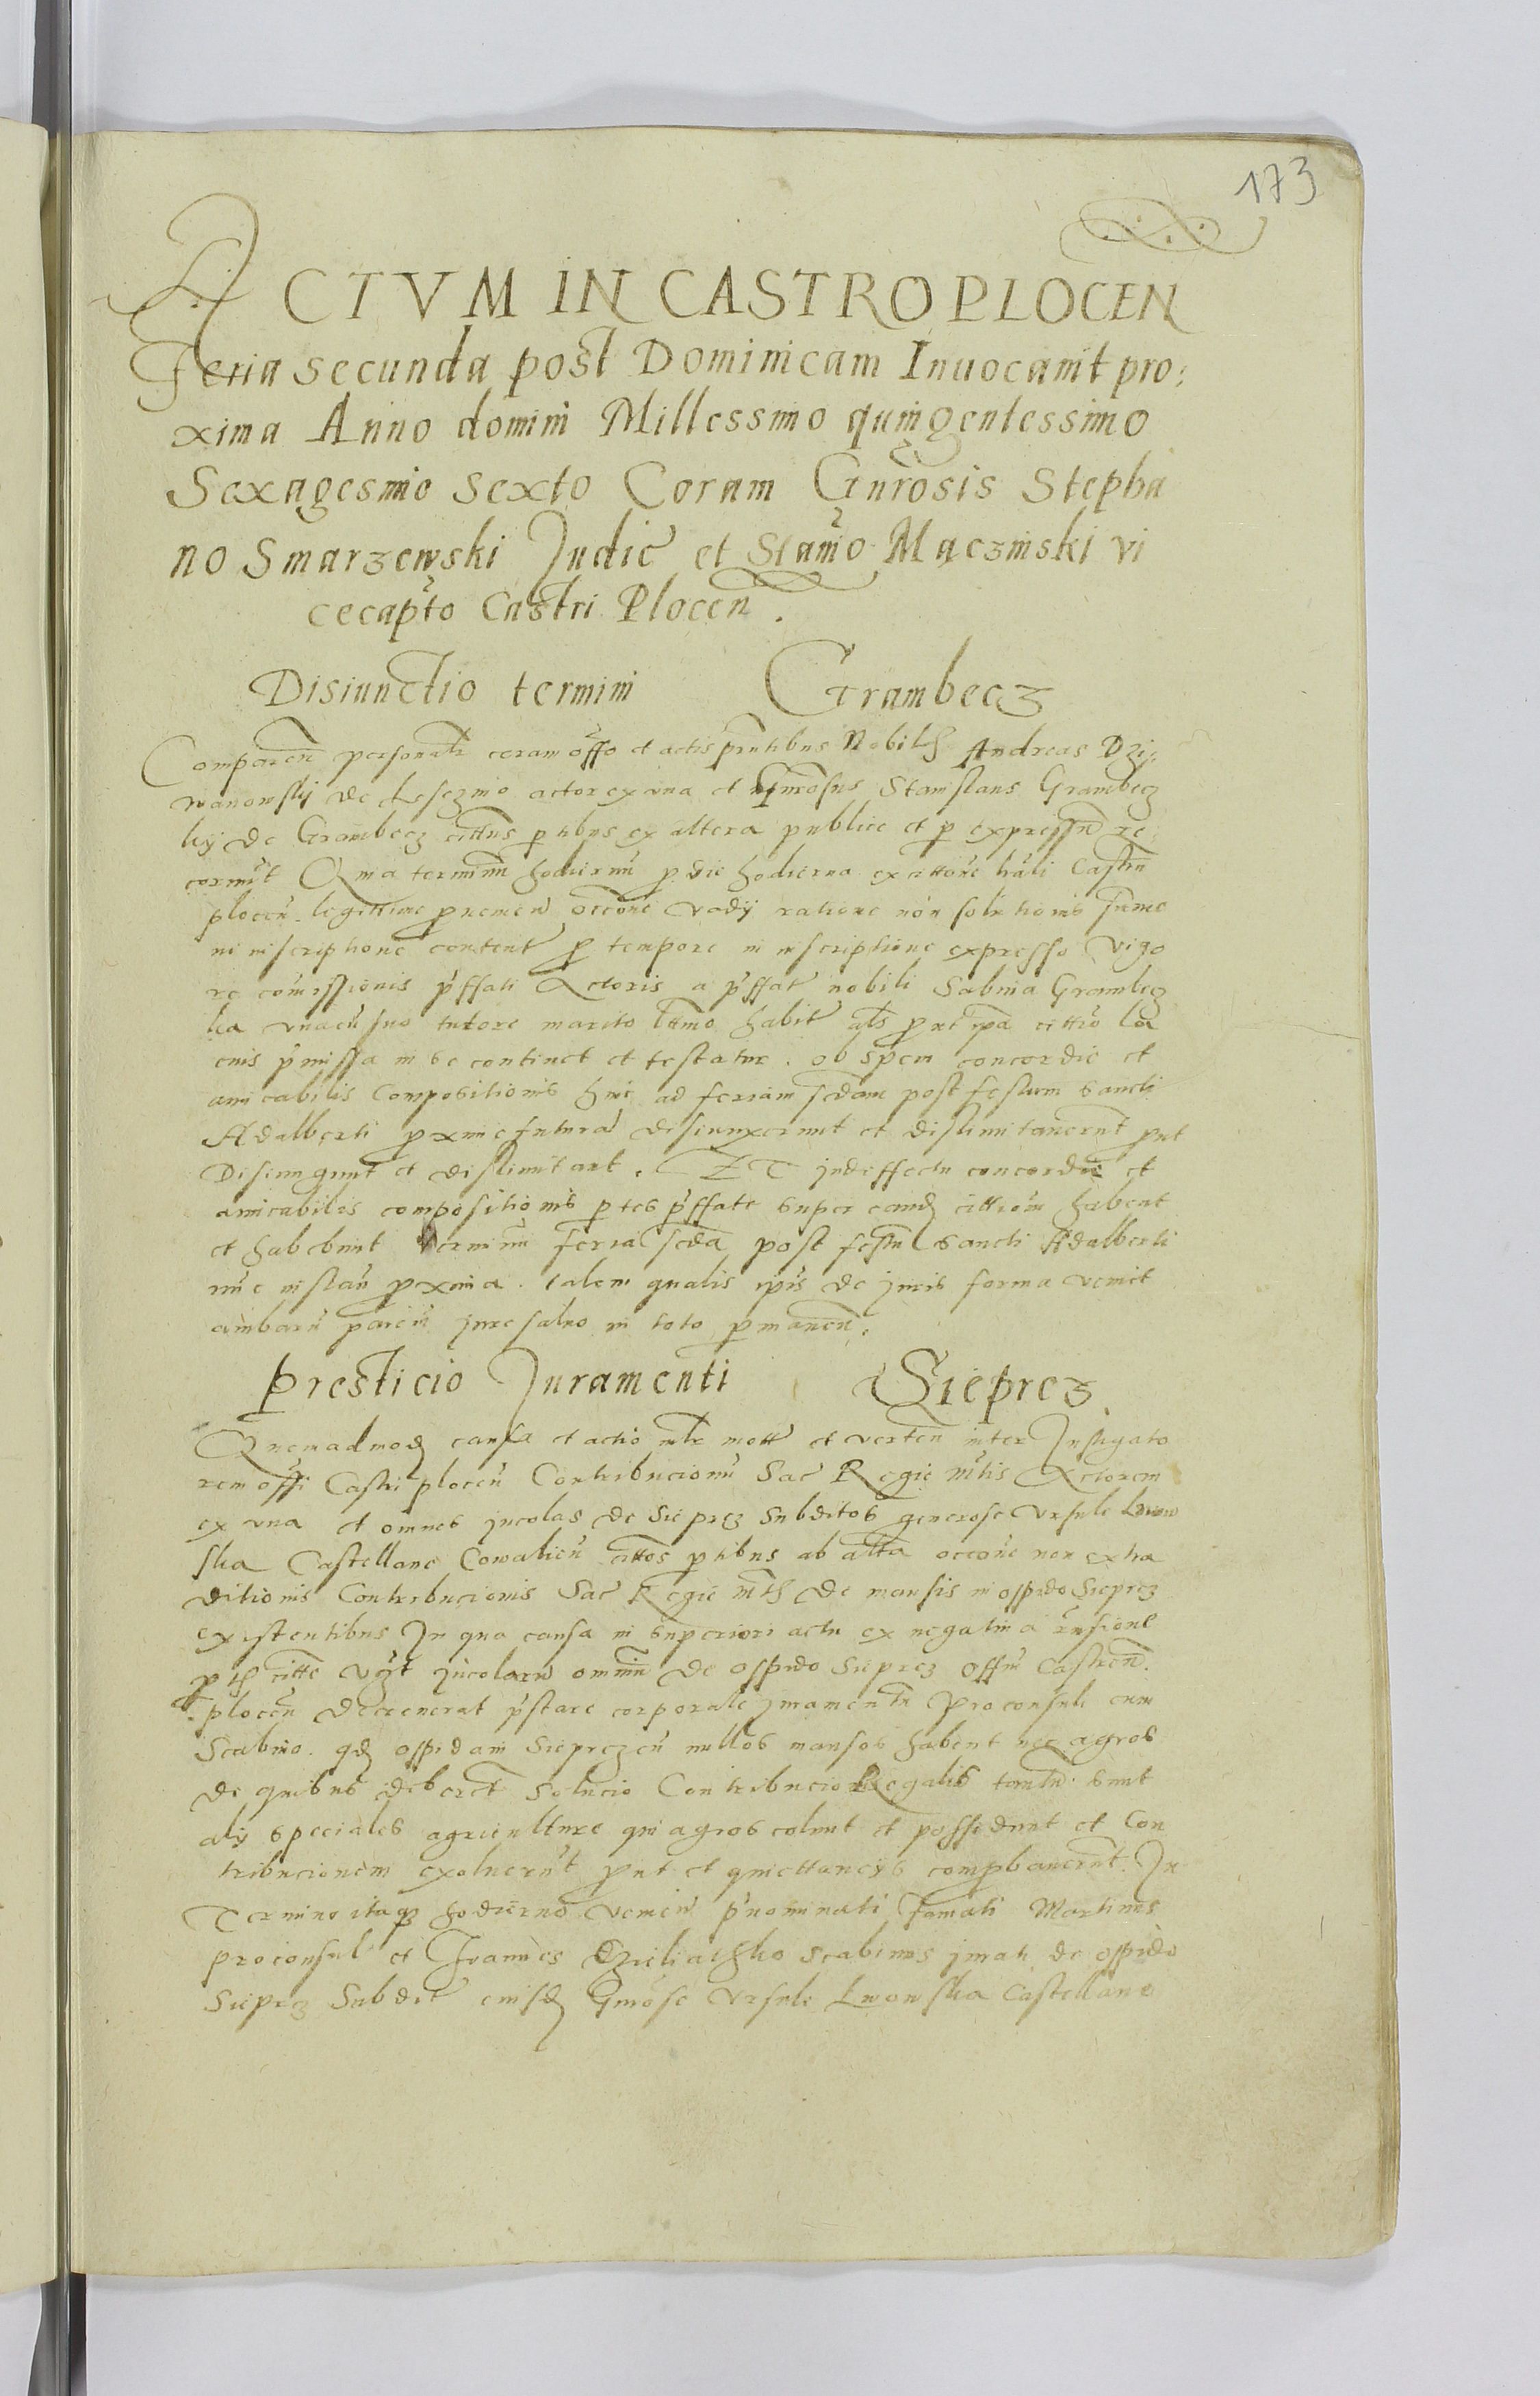 173
ACTVM IN CASTRO PLOCEN
Feria secunda post Dominicam Inuocauit pro:
xima Anno domini Millessimo quingentessimo
Sexagesimo sexto Coram Gnrosis Stepha
no Smarzewski Judic et Stanio Mączinski vi
cecapto Castri Plocen.
Disiunctio termini Grambecz
Comparen personalr coram offo et actis pntibus Nobil Andreas Dzi:
wanowsky de Lesczino actor ex vna et Gnrosus Stanislaus Grambecz
ky de Grambecz cittus ptibus ex altera publice et p expressu re
cornut Quia terminu hodiernu p die hodierna ex cittone hali Castri
plocen legittime puenien occone vadij ratione non solutionis sume
in inscriptione content p tempore in inscriptione expresso vigo
re comissionis pffati Actoris a pffat nobili Sabina Grambecz
ka vnacu suo tutore marito lttimo habit als put ipa cittio la
cius pmissa in se continet et testatur. ob spem concordie et
amicabilis compositionis hinc ad feriam scdam post festum sancti
Adalberti pxime futura disiunxerunt et dislimitauerunt put
Disiungunt et dislimitant. ET indeffectu concordie et
amicabilis compositionis ptes pffate super eand cittiom habent
et habebunt terminu feria scda post festu sancti Adalberti
nuc instan pxima. talem qualis ipis de juris forma venit
ambaru parciu jure saluo in toto pmanen.
Presticio Juramenti Sieprcz
Quemadmod causa et actio mott et verten inter Instigato
rem offi Castri plocen Contribucionu Sac Regie Mtis Actorem
ex vna et omnes incolas de Sieprcz subditos generose Vrsule Lwow
ska Castellane Cowalien cittos ptibus ab altra occone non extra
ditionis Contribucionis Sac Regie mt de mansis in oppido Sieprcz
existentibus In qua causa in superiori actu ex negatiua rnsione
pt citte vzt incolaru omniu de oppido Sieprcz offm Castren
plocen decreuerat pstare corporale juramentu proconsule cum
Scabino. qd oppidani Sieprczen nullos mansos habent nec agros
de quibus deberet solucio Contribucio Regalis tantu sunt
alij speciales agriculture qui agros colunt et possidunt et Con
tribucionem exoluerut put et quiettancijs compbauerunt. In
Termino itaq hodierno venien pnominati famati Martinus
proconsul et Joannes scabinus jurati de oppido
Sieprcz Subdit eiusd Gnrose Vrsule Lwowska Castellane